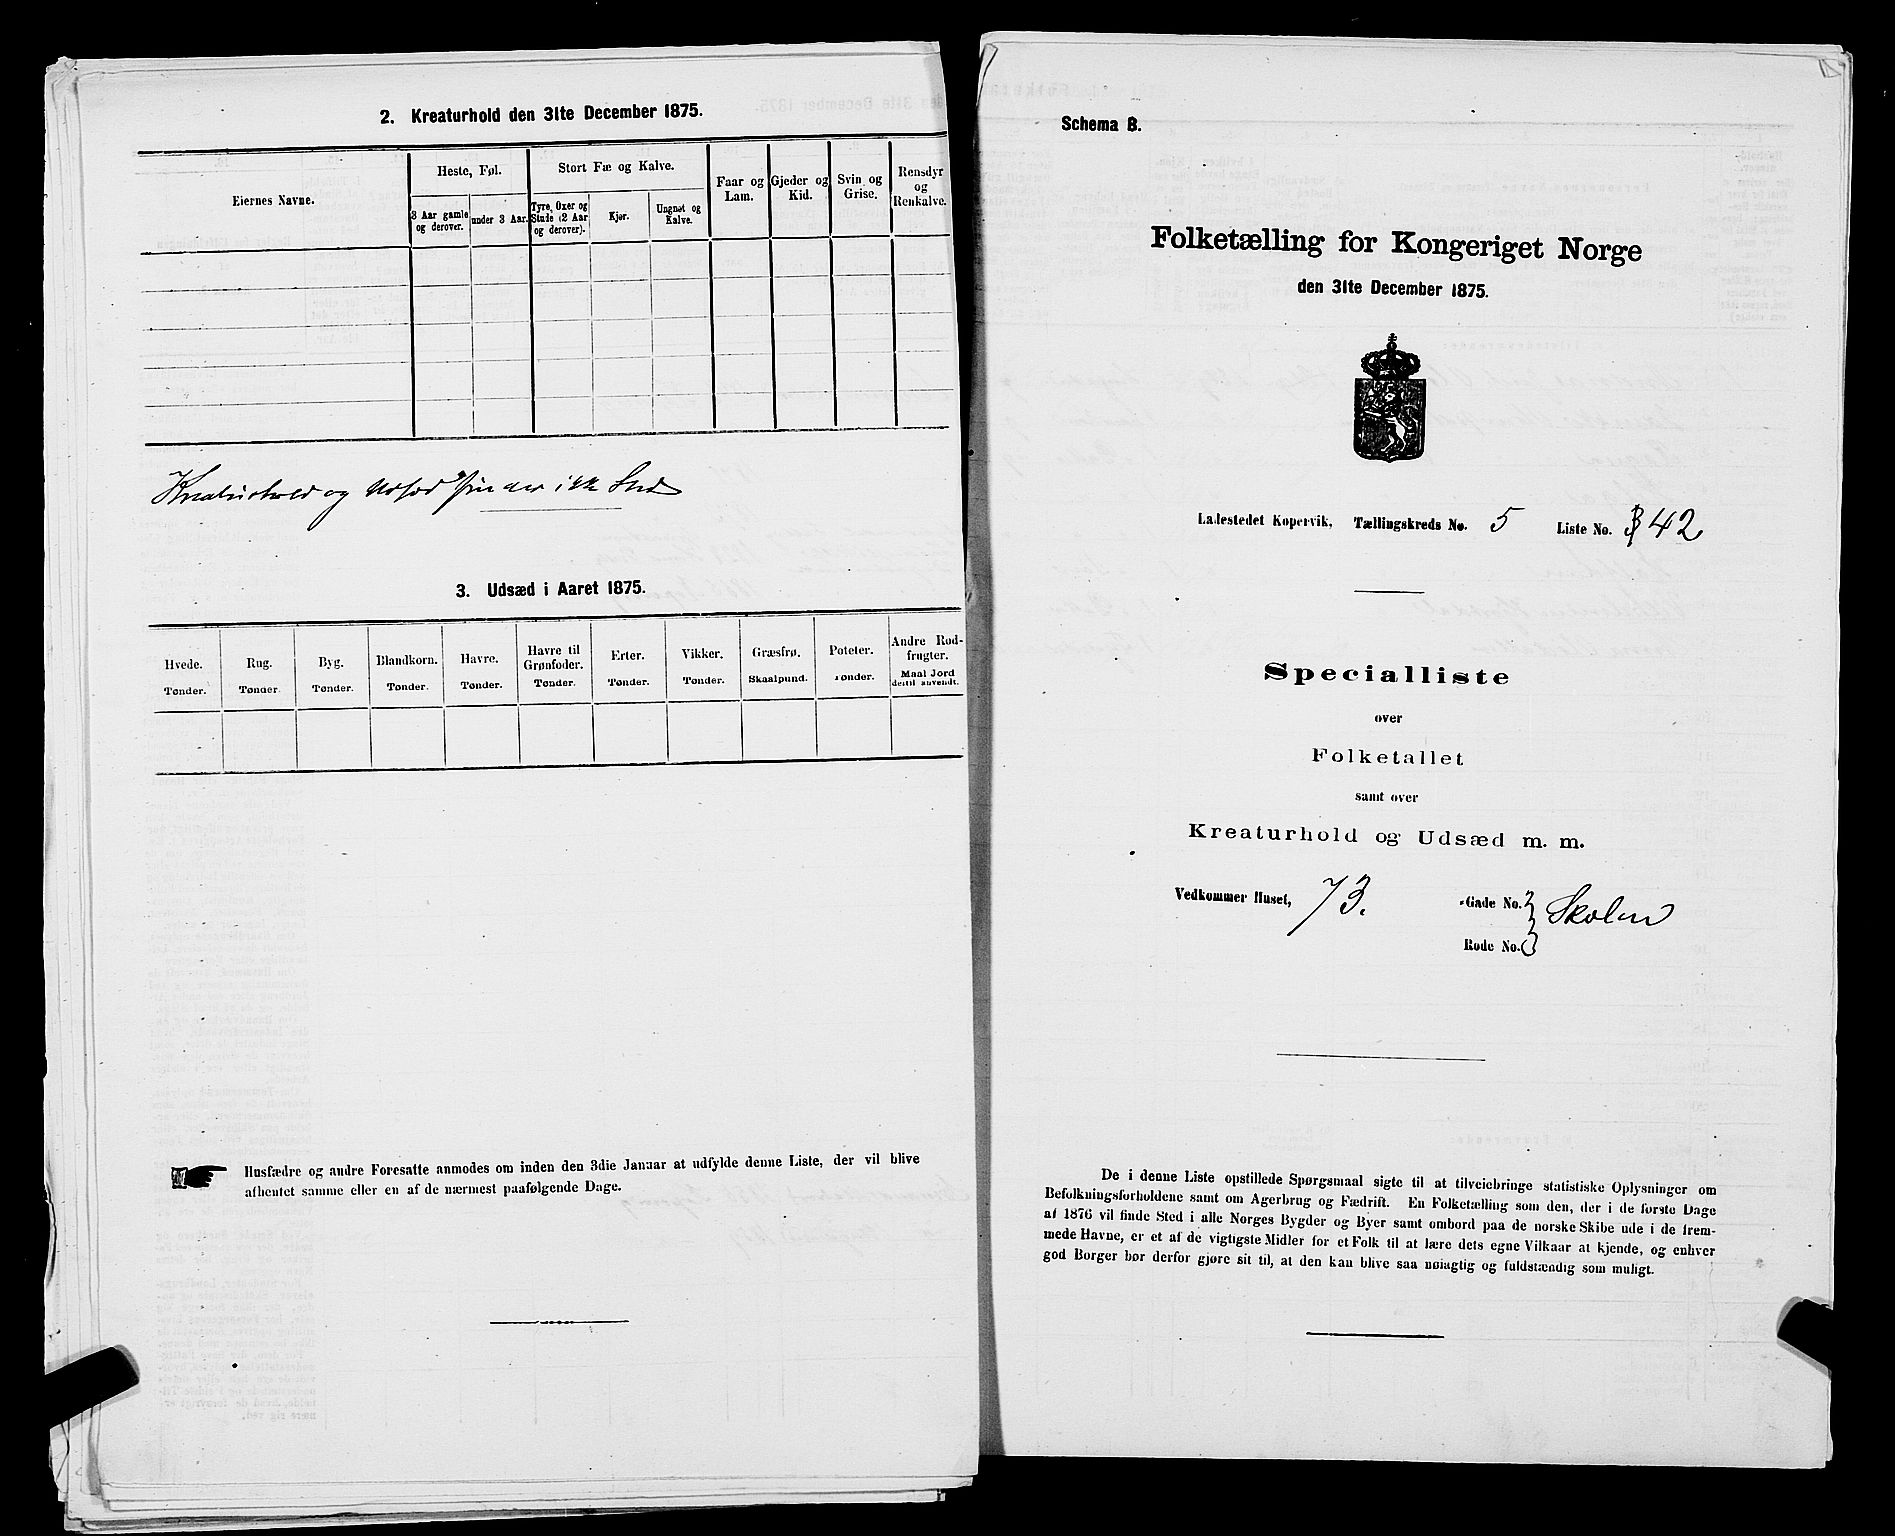 2. Kreaturhold den 31te December 1875.
Eiernes Navne.
Heste, Føl.
3 Aar gamle og derover.
under 3 Aar.
Stort Fæ og Kalve.
Tyre, Oxer og Stude (2 Aar og derover).
Kjør.
Ungnøt og Kalve.
Faar og Lam.
Gjeder og Kid.
Svin og Grise.
Rensdyr og Renkalve.
Kreaturhold og Udsæd finder ikke Sted
3. Udsæd i Aaret 1875.
Hvede. Tønder.
Rug. Tønder.
Byg. Tønder.
Blandkorn. Tønder.
Havre. Tønder.
Havre til Grønfoder. Tønder.
Erter. Tønder.
Vikker. Tønder.
Græsfrø. Skaalpund.
Poteter. Tønder.
Andre Rodfrugter. Maal Jord dertil anvendt.
Husfædre og andre Foresatte anmodes om inden den 3die Januar at udfylde denne Liste, der vil blive
afhentet samme eller en af de nærmest paafølgende Dage.
Schema B.
Folketælling for Kongeriget Norge
den 31te December 1875.
Ladestedet Kopervik, Tællingskreds No. 5 Liste No. 42
Specialliste
over
Folketallet
samt over
Kreaturhold og Udsæd m. m.
Vedkommer Huset, 73. -Gade No. Skolen
Rode No.
De i denne Liste opstillede Spørgsmaal sigte til at tilveiebringe statistiske Oplysninger om
Befolkningsforholdene samt om Agerbrug og Fædrift. En Folketælling som den, der i de første Dage
af 1876 vil finde Sted i alle Norges Bygder og Byer samt ombord paa de norske Skibe ude i de frem-
mede Havne, er et af de vigtigste Midler for et Folk til at lære dets egne Vilkaar at kjende, og enhver
god Borger bør derfor gjøre sit til, at den kan blive saa nøiagtig og fuldstændig som muligt.